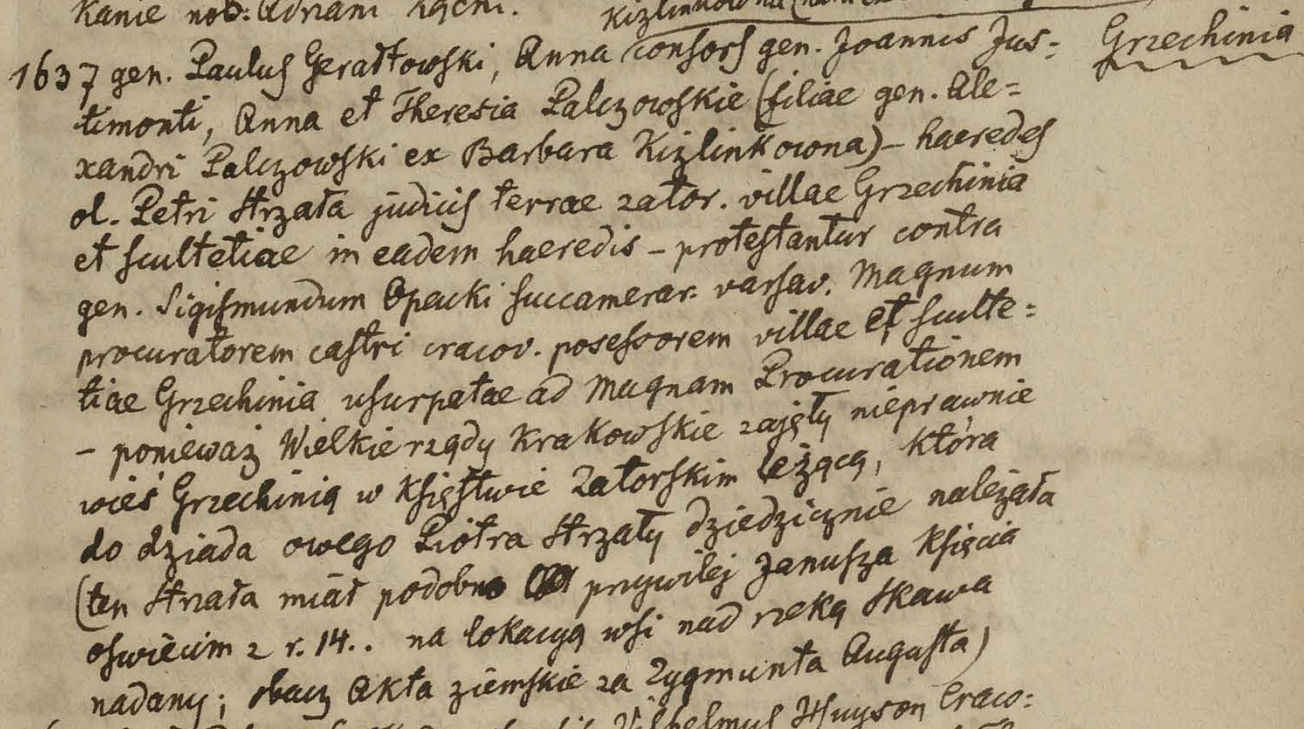 Kanie nob. Adriani
Kizlinkowna
1637 gen. Paulus Gerałtowski, Anna consors gen. Joannis Jus= Grzechinia
timonti, Anna et Theresia Palczowskie (filiae gen. Ale=
xandri Palczowski ex Barbara Kizlinkowna) – haeredes
ol. Petri Strzała judicis terrae zator. villae Grzechinia
et scultetiae in eadem haeredis – protestantur contra
gen. Sigismundum Opacki succamerar. varsav. Magnum
procuratorem castri cracov. posessorem villae et sculte=
tiae Grzechinia usurpatae ad Magnam Procurationem
– ponieważ Wielkie rządy Krakowskie zajęły nieprawnie
wieś Grzechinią w Księstwie Zatorskim leżącą, która
do dziada owego Piotra Strzały dziedzicznie należała
(ten Strzała miał podobno przywilej Janusza Księcia
oswiecim z r. 14.. na lokacyą wsi nad rzeką Skawa
nadany; obacz Akta ziemskie za Zygmunta Augusta)
Vilhelmus Craco=